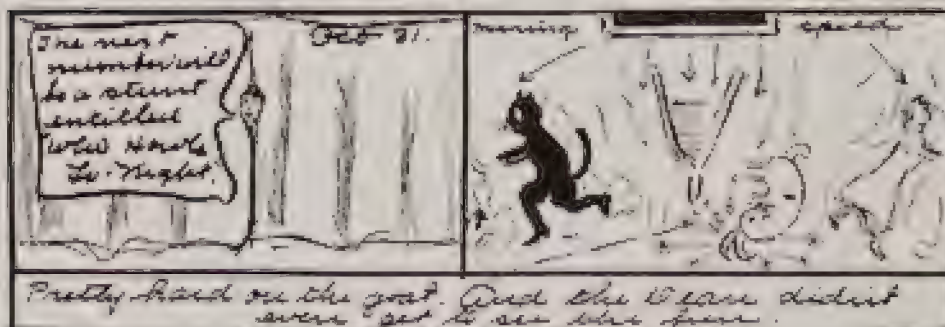 The next
number will
be a stunt
entitled
Wild Howls
To-Night.
Oct 31.
moving
speed
Pretty hard on the goat. And the Dean didn't
even get to see the fun.